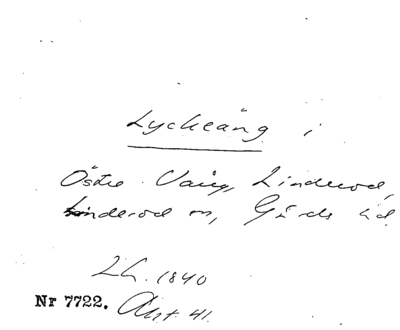 Lyckeäng i
Östre Vång, Linderod,
Linderod sn, Gärds hd.
LS. 1840
Nr 7722. Akt 41.